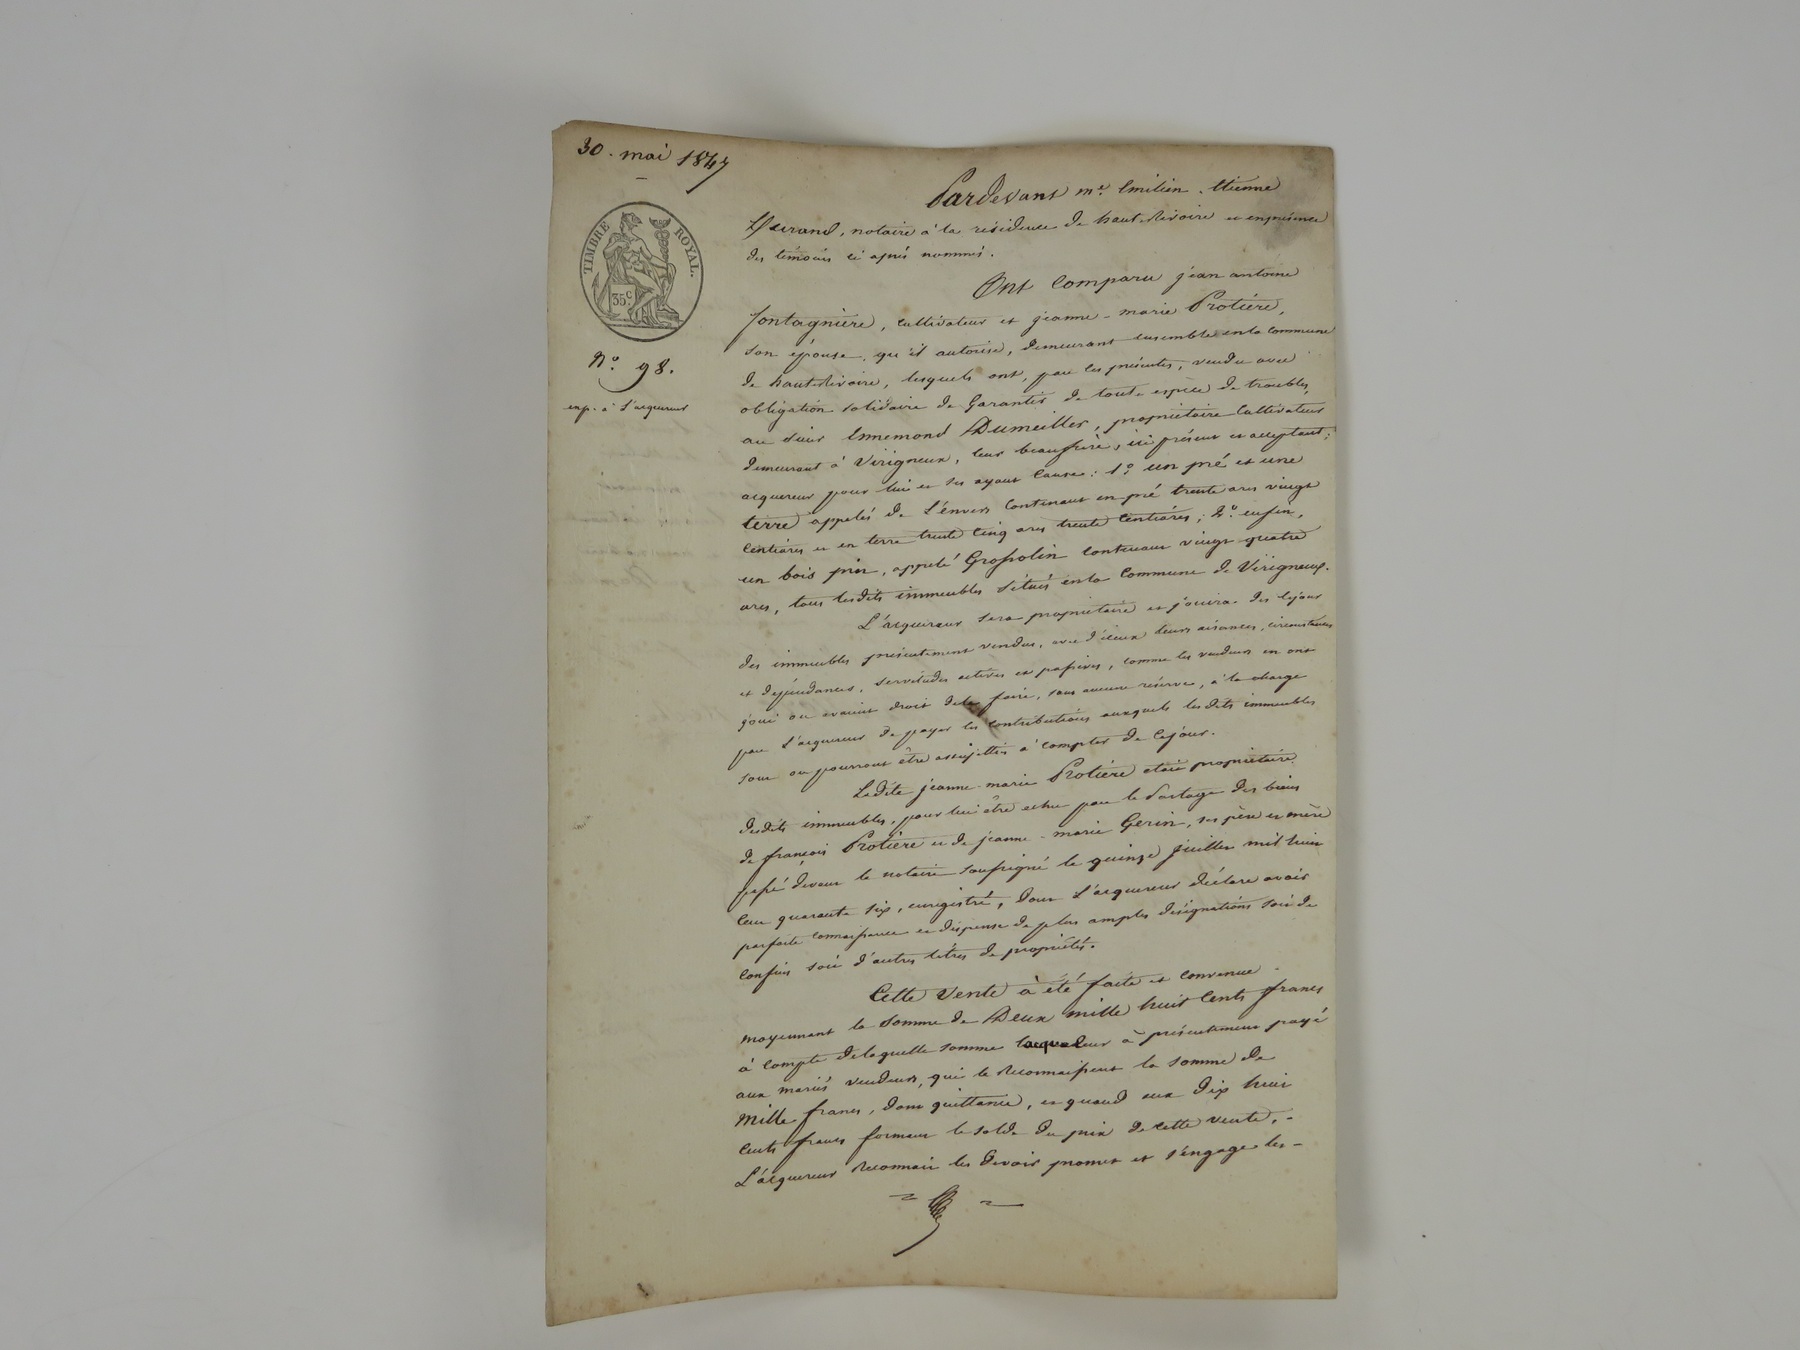 30. mai 1847
TIMBRE ROYAL.
35c
N° 98.
exp. à l'acquereur
Pardevant me. Emilien. Etienne
Durand, notaire à la résidence de haut-Rivoire et en présence
des témoins ci après nommés.
Ont comparu jean antoine
fontagnière, cultivateur et jeanne-marie Protière,
son épouse, qu'il autorise, demeurant ensemble en la commune
de haut Rivoire, lesquels ont, par ces présentes, vendu avec
obligation solidaire de Garantir de toute espèce de troubles,
au sieur Ennemond Dumeiller, propriétaire cultivateur
demeurant à Virigneux, leur beaufrère, ici présent et acceptant;
acquereur pour lui et ses ayant cause: 1° un pré et une
terre appelés de L'énvers contenant en pré trente ares vingt
centiares et en terre trente cinq ares trente centiares; 2° enfin,
un bois pin, appelé Grossolin contenant vingt quatre
ares, tous lesdits immeubles situés en la Commune de Virigneux.
L'acquereur sera propriétaire et jouira dès cejour
des immeubles présentement vendus, avec d'iceux leurs aisances, circonstances
et dépendances, servitudes actives et passives, comme les vendeurs en ont
joui ou avaient droit de le faire, sans aucune réserve, à la charge
par l'acquereur de payer les contributions auxquels lesdits immeubles
sont ou pourront être assujettis à compter de cejour.
Ladite jeanne-marie Protière était propriétaire
desdits immeubles, pour lui être echu par le Partage des biens
de françois Protière et de jeanne-marie Gerin, ses père et mère
passé devant le notaire soussigné le quinze juillet mil huit
cent quarante six, enregistré, dont l'acquereur déclare avoir
parfaite connaissance et dispense de plus amples désignations soit de
confins soit d'autres titres de propriétés.
Cette vente à été faite et convenue
moyennant la somme de Deux mille huit cents francs
à compte delaquelle somme lacquéreur à présentement payé
aux mariés vendeurs, qui le reconnaissent la somme de
Mille francs, dont quittance, et quand aux dix huit
cents francs formant le solde du prix de cette vente,
L'acquereur reconnait les devoir promet et s'engage les-